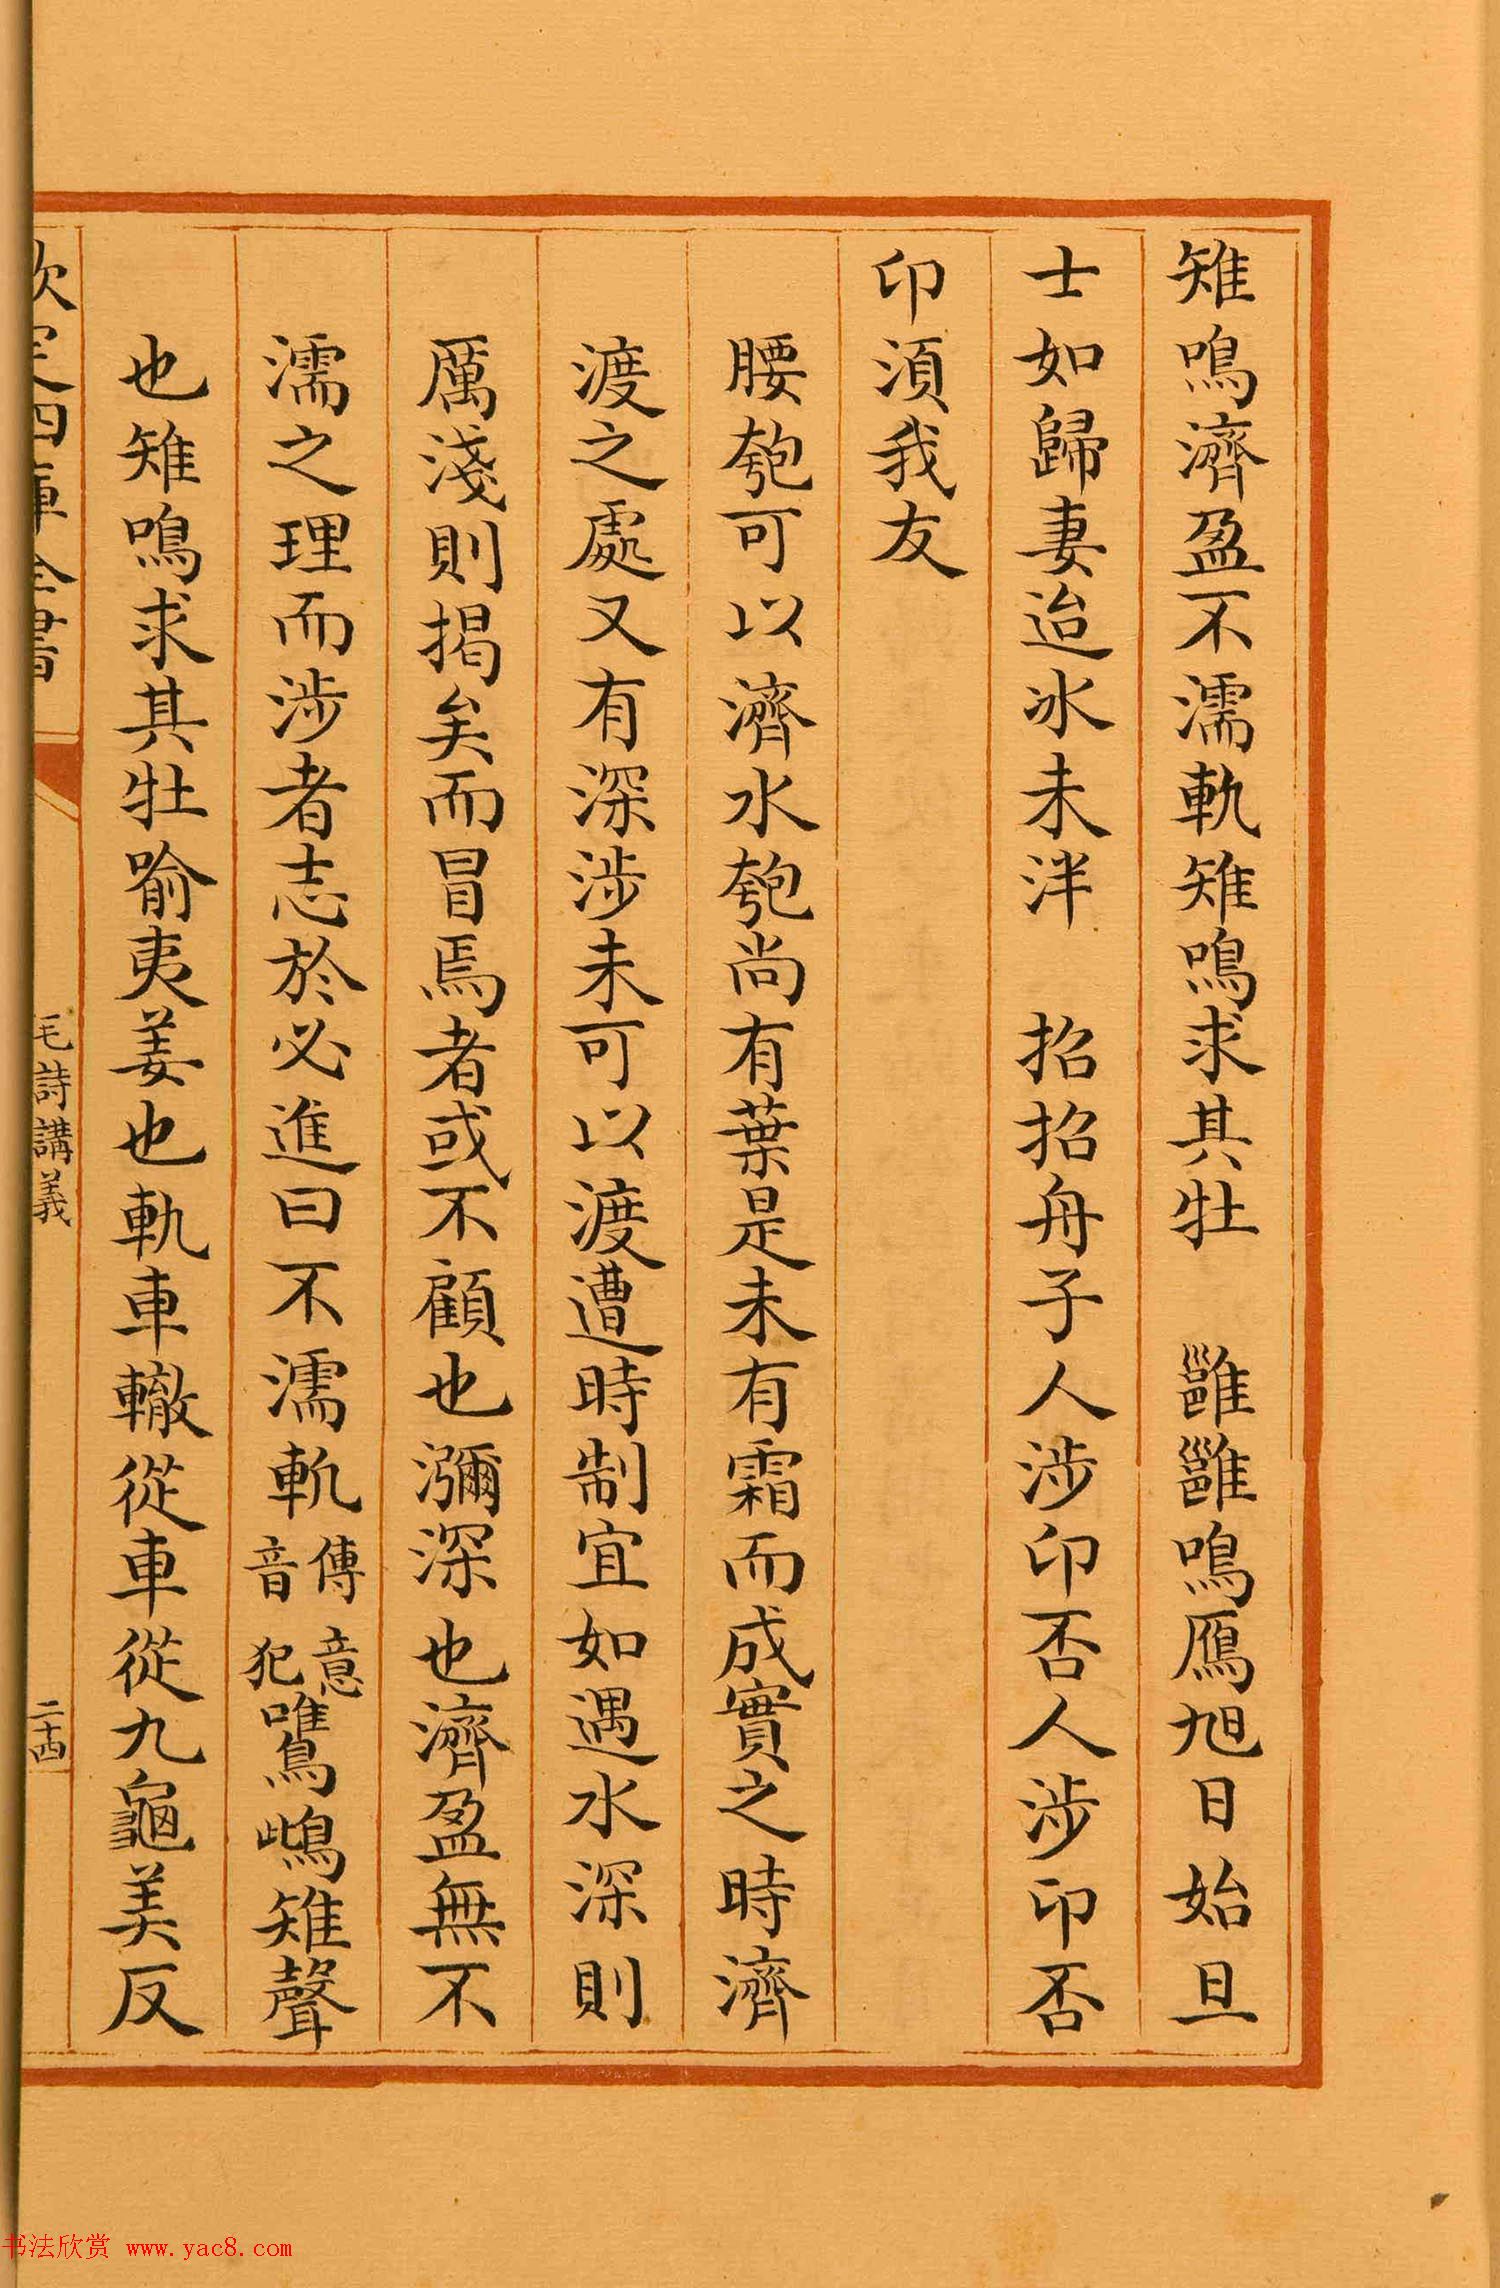 雉鳴濟盈不濡軌雉鳴求其牡　雝雝鳴鴈旭日始旦
士如歸妻迨冰未泮　招招舟子人涉卬否人涉卬否
卬須我友
腰匏可以濟水匏尚有葉是未有霜而成實之時濟
渡之處又有深涉未可以渡遭時制宜如遇水深則
厲淺則揭矣而冒焉者或不顧也瀰深也濟盈無不
濡之理而涉者志於必進曰不濡軌傳意音犯鷕鳴雉聲
也雉鳴求其牡喻夷姜也軌車轍從車從九龜美反
欽定四庫全書
毛詩講義
二十四
书法欣赏 www.yac8.com